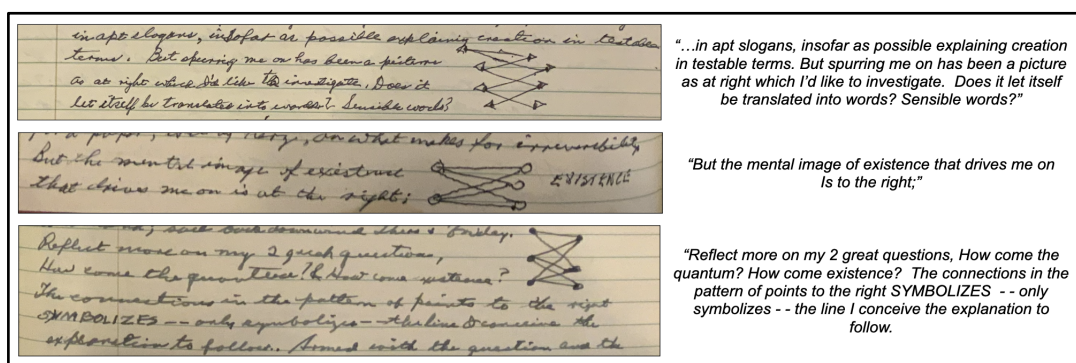 in apt slogans, insofar as possible explaining creation in testable
terms. But spurring me on has been a picture
as at right which I'd like to investigate. Does it
let itself be translated into words? Sensible words?
“…in apt slogans, insofar as possible explaining creation
in testable terms. But spurring me on has been a picture
as at right which I’d like to investigate. Does it let itself
be translated into words? Sensible words?”
on what makes for irreversibility
But the mental image of existence
EXISTENCE
that drives me on is at the right;
“But the mental image of existence that drives me on
Is to the right;”
Friday.
Reflect more on my 2 great questions,
How come the quantum? & How come existence?
The connections in the pattern of points to the right
SYMBOLIZES -- only symbolizes -- the line I conceive the
explanation to follow.. Armed with the question and the
“Reflect more on my 2 great questions, How come the
quantum? How come existence? The connections in the
pattern of points to the right SYMBOLIZES - - only
symbolizes - - the line I conceive the explanation to
follow.